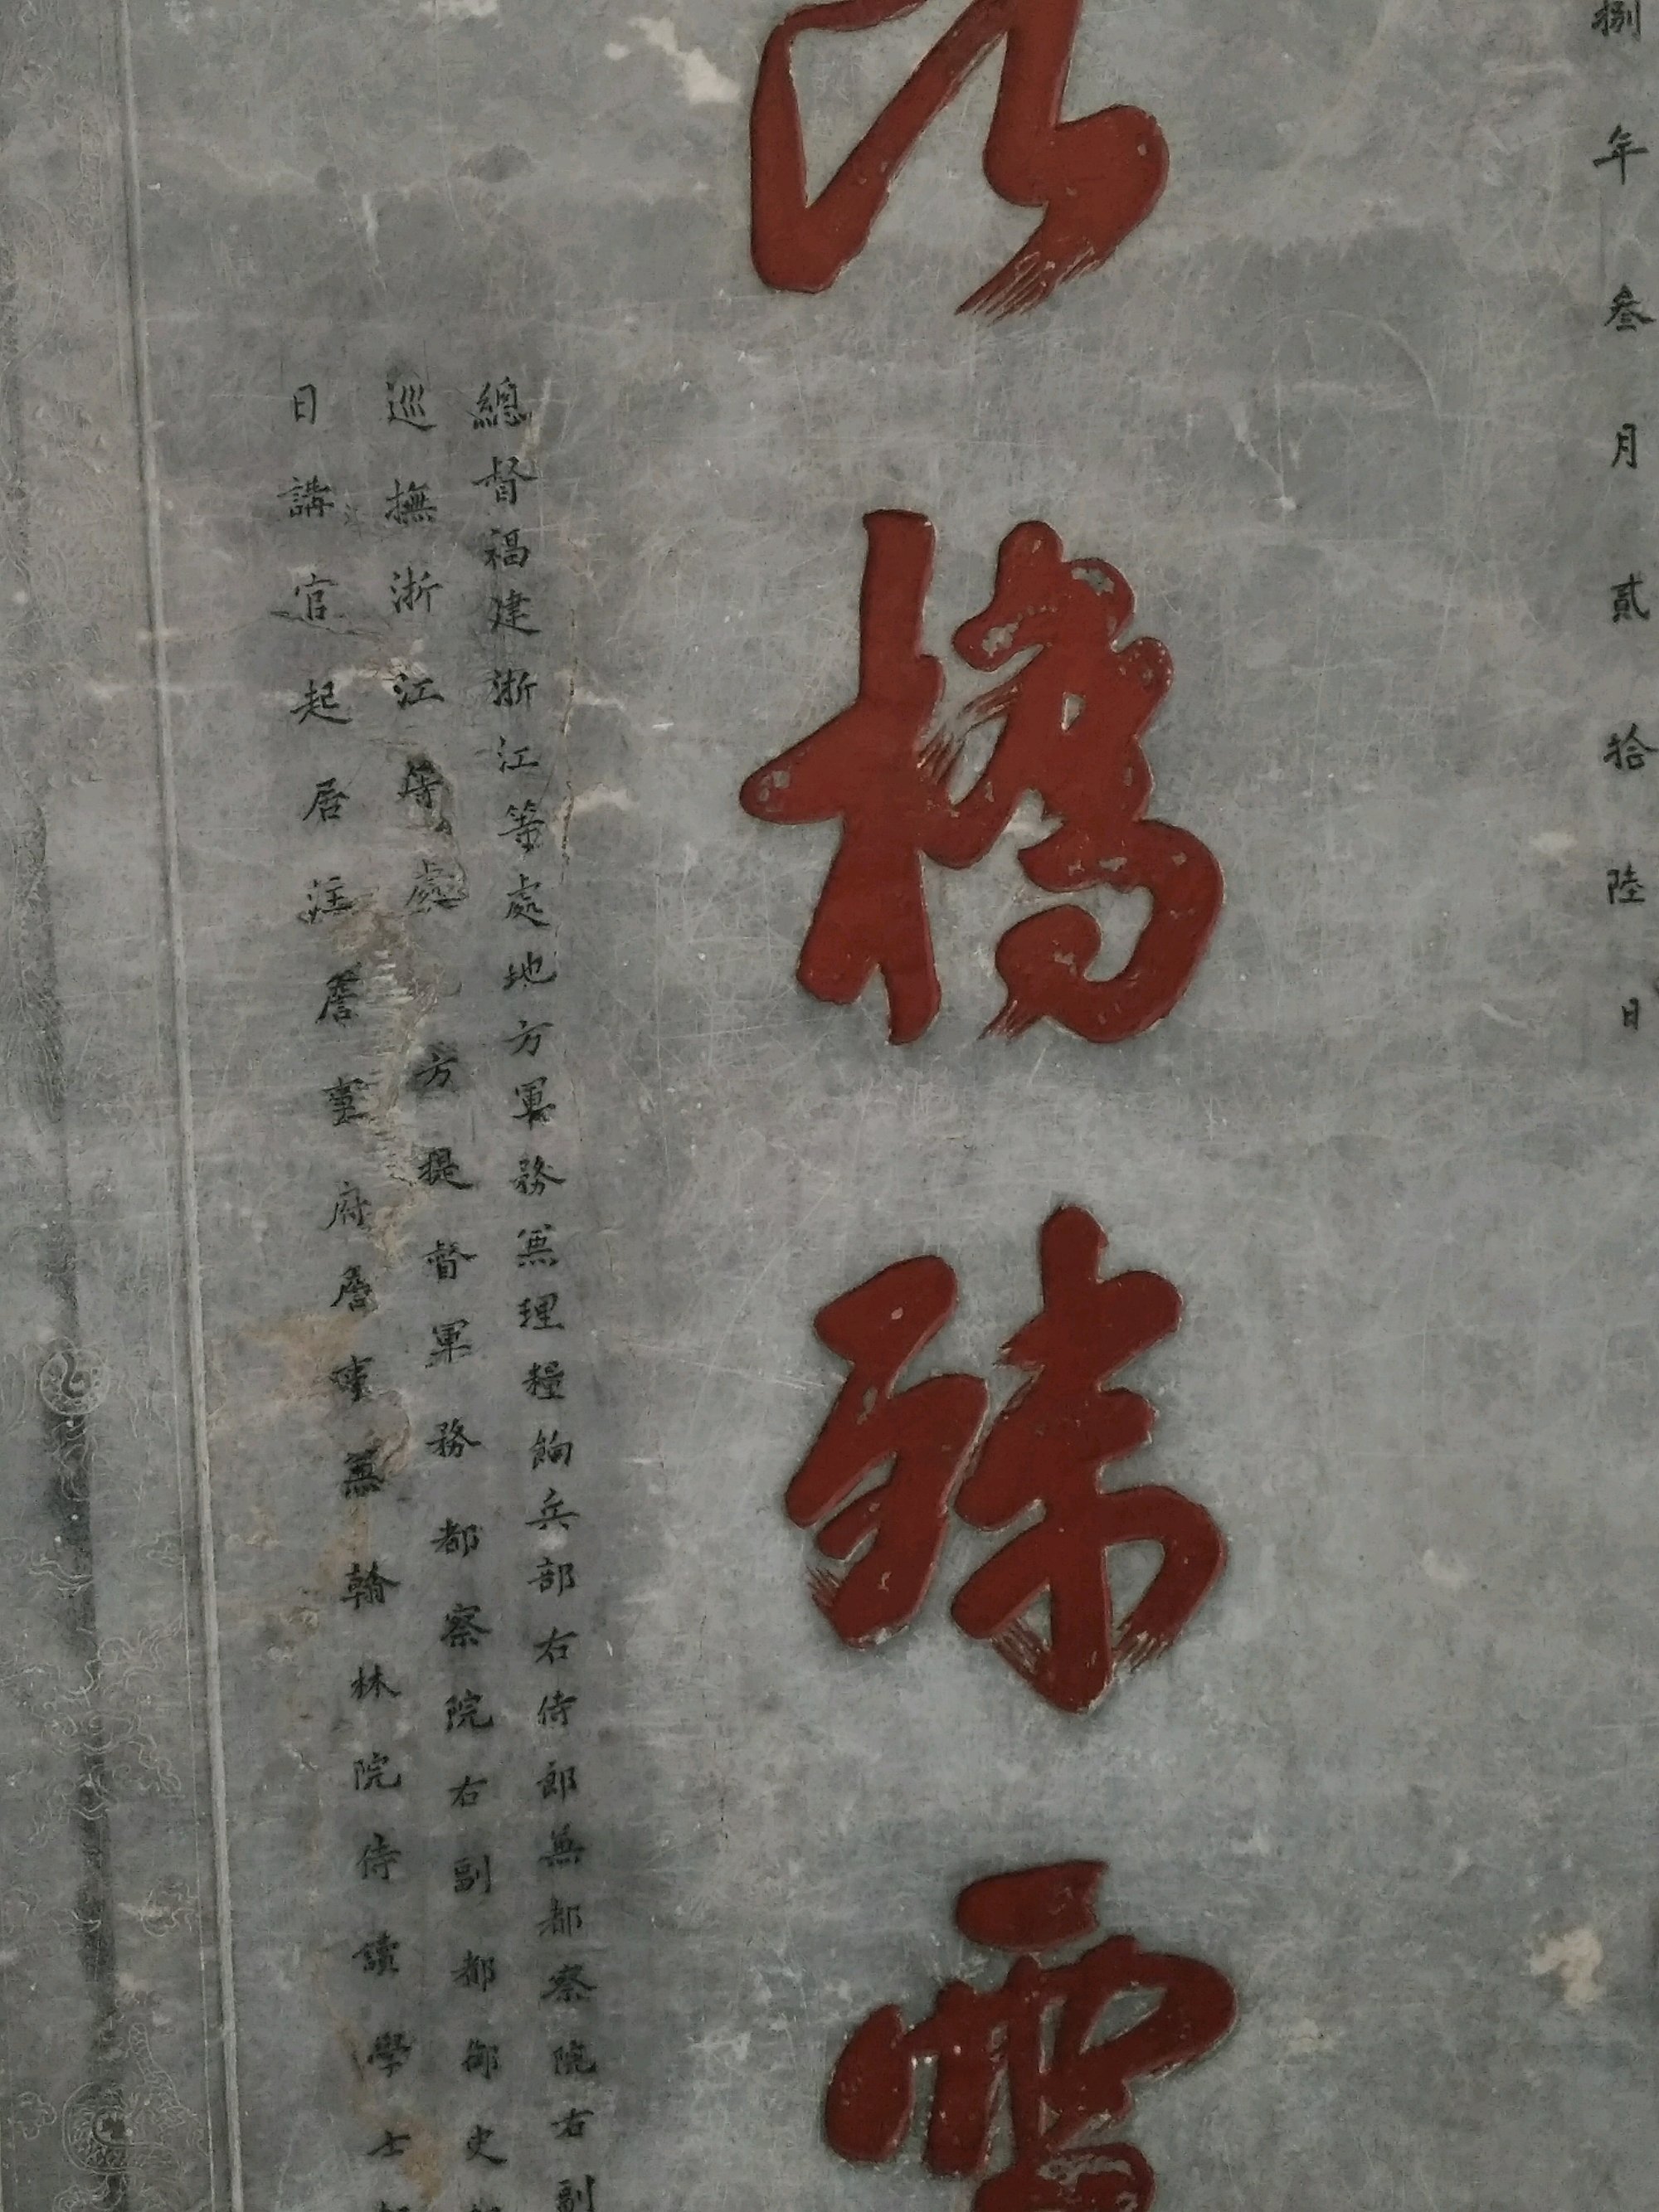 捌年叁月貳拾陸日
橋 殘 雪
總督福建浙江等處地方軍務兼理糧餉兵部右侍郎兼都察院右副
巡撫浙江等處地方提督軍務都察院右副都御史
日講官起居注詹事府詹事兼翰林院侍讀學士